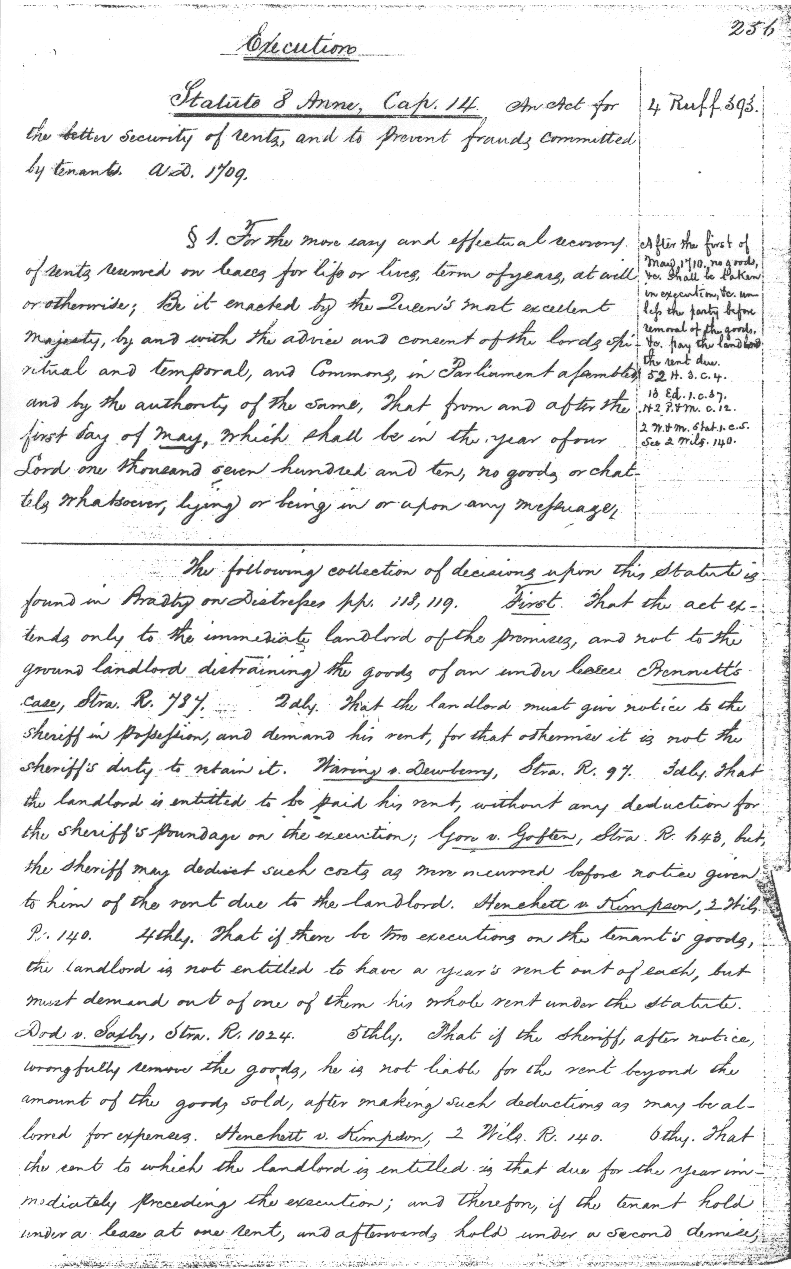 256
Execution
Statute 8 Anne, Cap. 14. An Act for
the better security of rents, and to prevent frauds committed
by tenants. A.D. 1709.
4 Ruff. 393.
§ 1. For the more easy and effectual recovery
of rents reserved on leases for life or lives, term of years, at will
or otherwise; Be it enacted by the Queen's most excellent
majesty, by and with the advice and consent of the lords spi-
ritual and temporal, and Commons, in Parliament assembled
and by the authority of the same, That from and after the
first day of May, which shall be in the year of our
Lord one thousand seven hundred and ten, no goods or chat-
tels whatsoever, lying or being in or upon any messuage,
After the first of
May, 1710, no goods,
&c. shall be taken
in execution, &c. un-
less the party before
removal of the goods,
&c. pay the landlord
the rent due.
52 H. 3. c. 4.
13 Ed. 1. c. 37.
1 & 2 P. & M. c. 12.
2 W. & M. Stat. 1. c. 5.
See 2 Wils. 140.
The following collection of decisions upon this Statute is
found in Bradby on Distresses pp. 118, 119. First. That the act ex-
tends only to the immediate landlord of the premises, and not to the
ground landlord distraining the goods of an under lessee Bennett's
case, Stra. R. 787. 2dly. That the landlord must give notice to the
sheriff in possession, and demand his rent, for that otherwise it is not the
sheriff's duty to retain it. Waring v. Dewberry, Stra. R. 97. 3dly. That
the landlord is entitled to be paid his rent, without any deduction for
the sheriff's poundage on the execution; Gore v. Goften, Stra. R. 643, but,
the sheriff may deduct such costs as were incurred before notice given
to him of the rent due to the landlord. Henchett v. Kimpson, 2 Wils.
R. 140. 4thly. That if there be two executions on the tenant's goods,
the landlord is not entitled to have a year's rent out of each, but
must demand out of one of them his whole rent under the statute.
Dod v. Saxby, Stra. R. 1024. 5thly. That if the sheriff, after notice,
wrongfully remove the goods, he is not liable for the rent beyond the
amount of the goods sold, after making such deductions as may be al-
lowed for expenses. Henchett v. Kimpson, 2 Wils. R. 140. 6thy. That
the rent to which the landlord is entitled is that due for the year im-
mediately preceding the execution; and therefore, if the tenant hold
under a lease at one rent, and afterwards hold under a second demise,